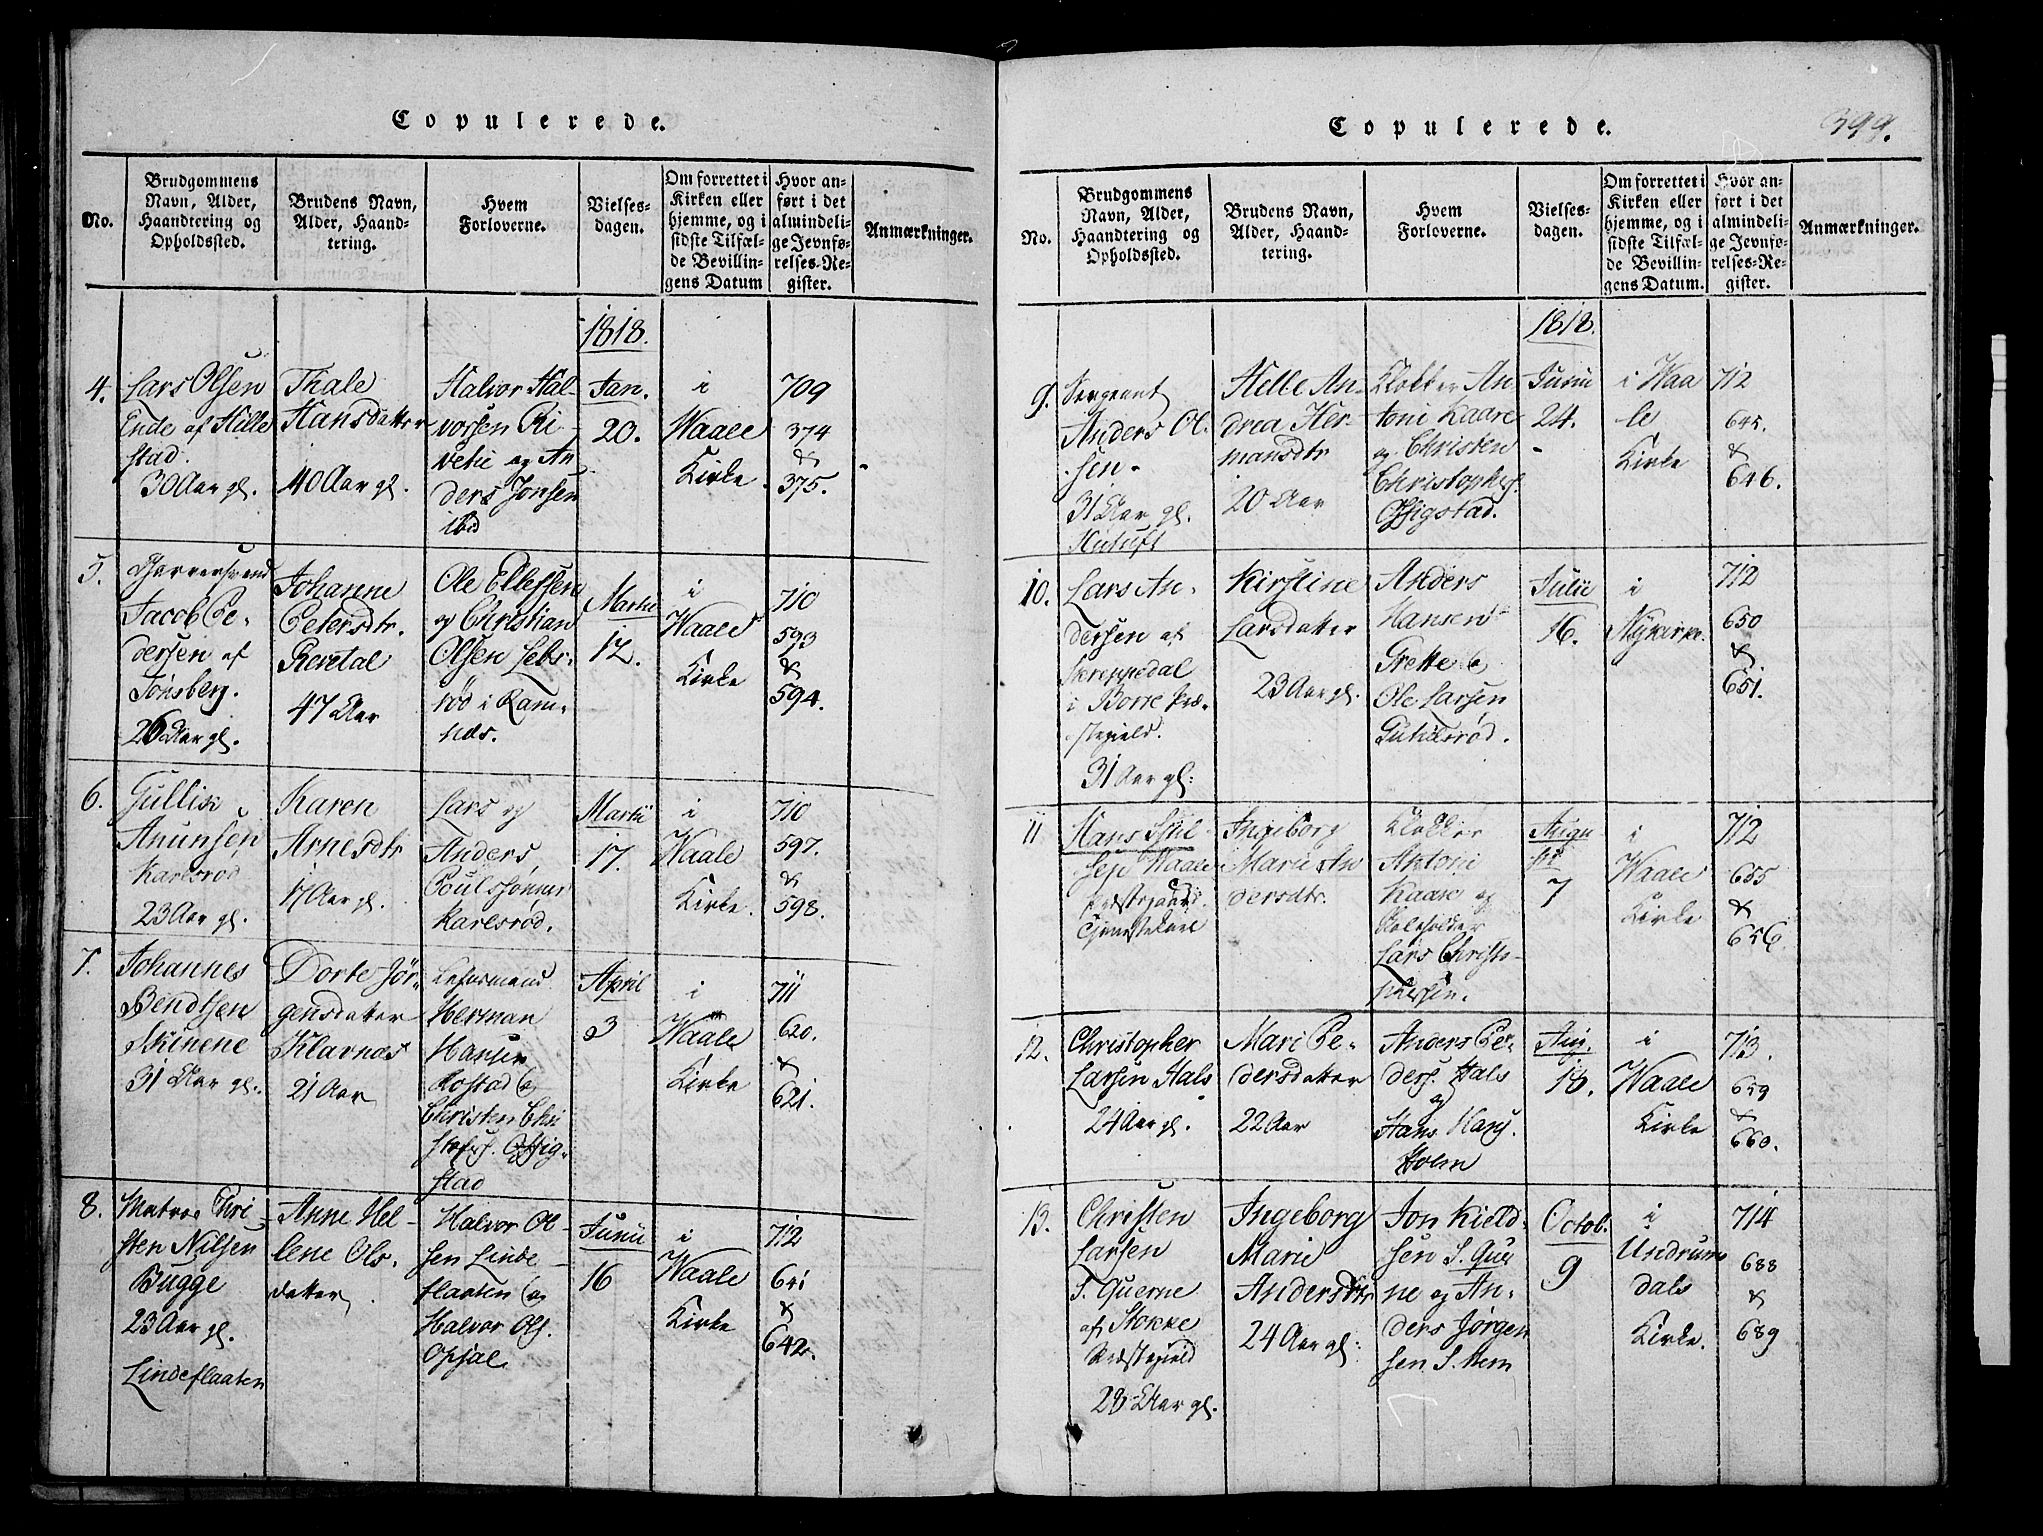 Copulerede.
No.
Brudgommens
Navn, Alder,
Haandtering og
Opholdssted.
Brudens Navn,
Alder, Haand-
tering.
Hvem
Forloverne.
Vielses-
dagen.
Om forrettet i
Kirken eller
hjemme, og i
sidste Tilfæl-
de Bevillin-
gens Datum
Hvor an-
ført i det
almindeli-
ge Jevnfø-
relses-Re-
gister.
Anmærkninger.
1818.
4.
Lars Olsen
Ende af Hille
stad.
30 Aar gl.
Thale
Hansdatter
40 Aar gl.
Halvor Hal-
vorsen Ri-
vetie og An
ders Jonsen
ibid
Jan.
20.
i
Waale
Kirke.
709
374
&
375.
5.
Jacob Pe-
dersen af
Tønsberg.
26 Aar gl.
Johanne
Petersdtr.
Revetal
47 Aar
Ole Ellefsen
og Christian
Olsen Lebs-
rød i Ram-
nes.
Martii
12.
i
Waale
Kirke
710
593
&
594.
6.
Gullik
Anunsen
Karlsrød
23 Aar gl.
Karen
Arnesdtr
17 Aar gl.
Lars og
Anders
Poulssønner
Karlsrød.
Martii
17.
i
Waale
Kirke.
710
597.
&
598.
7.
Johannes
Bendtsen
31 Aar gl.
Dorte Jør-
gensdatter
Klavnes
21 Aar
Herman
Hansen
Rostad og
Christen Chri
stophs. Østig-
stad
April
3
i
Waale
Kirke
711
620.
&
621.
8.
Matros Chri-
sten Nilsen
Bugge
23 Aar gl.
Lindeflaaten
Anne Hel-
lene Ols-
datter
Halvor Ol-
sen Linde-
flaaten og
Halvor Ols.
Opsal
Junii
16
i
Waale
Kirke
712
641
&
642.
Copulerede.
399.
No.
Brudgommens
Navn, Alder,
Haandtering og
Opholdssted.
Brudens Navn,
Alder, Haand-
tering.
Hvem
Forloverne.
Vielses-
dagen.
Om forrettet i
Kirken eller
hjemme, og i
sidste Tilfæl-
de Bevillin-
gens Datum.
Hvor an-
ført i det
almindeli-
ge Jevnfø-
relses-Re-
gister.
Anmærkninger.
1818.
9.
Sergeant
Anders Ol-
sen
31 Aar gl.
Helle An-
drea Her-
mansdtr
20 Aar
Klokker An
toni Kaare
og Christen
Christophers.
Østigstad.
Junii
24.
i Waa
le
Kirke
712
645.
&
646.
10.
Lars An-
dersen af
Skreppedal
i Borre Præ-
stegield.
31 Aar gl.
Kirstine
Larsdatter
23 Aar gl.
Anders
Hansen
Grette og
Ole Larsen
Gunnerød.
Julii
16.
i
Nykirke.
712
650
&
651.
11
Hans
Waale
Præstegaards
Tjenestekarl
Ingeborg
Marie An
dersdtr.
Klokker
Antoni
Kaare og
Lars Christo-
phersen.
Augu
sti
7
i
Waale
Kirke
712
655
&
656.
12.
Christopher
Larsen Hals
24 Aar gl.
Mari Pe-
dersdatter
22 Aar
Anders Pe-
ders. Hals
og
Hans Hans.
Holm
Aug.
18.
i
Waale
Kirke
713.
659
&
660.
13.
Christen
Larsen
S. Querne
af Stokke
Præstegield
28 Aar gl.
Ingeborg
Marie
Andersdtr
24 Aar gl.
Jon Kield-
sen S. Quer
ne og An-
ders Jørgen
sen S. Hem
Octob.
9
i
Undrums
dals
Kirke.
714
688
&
689